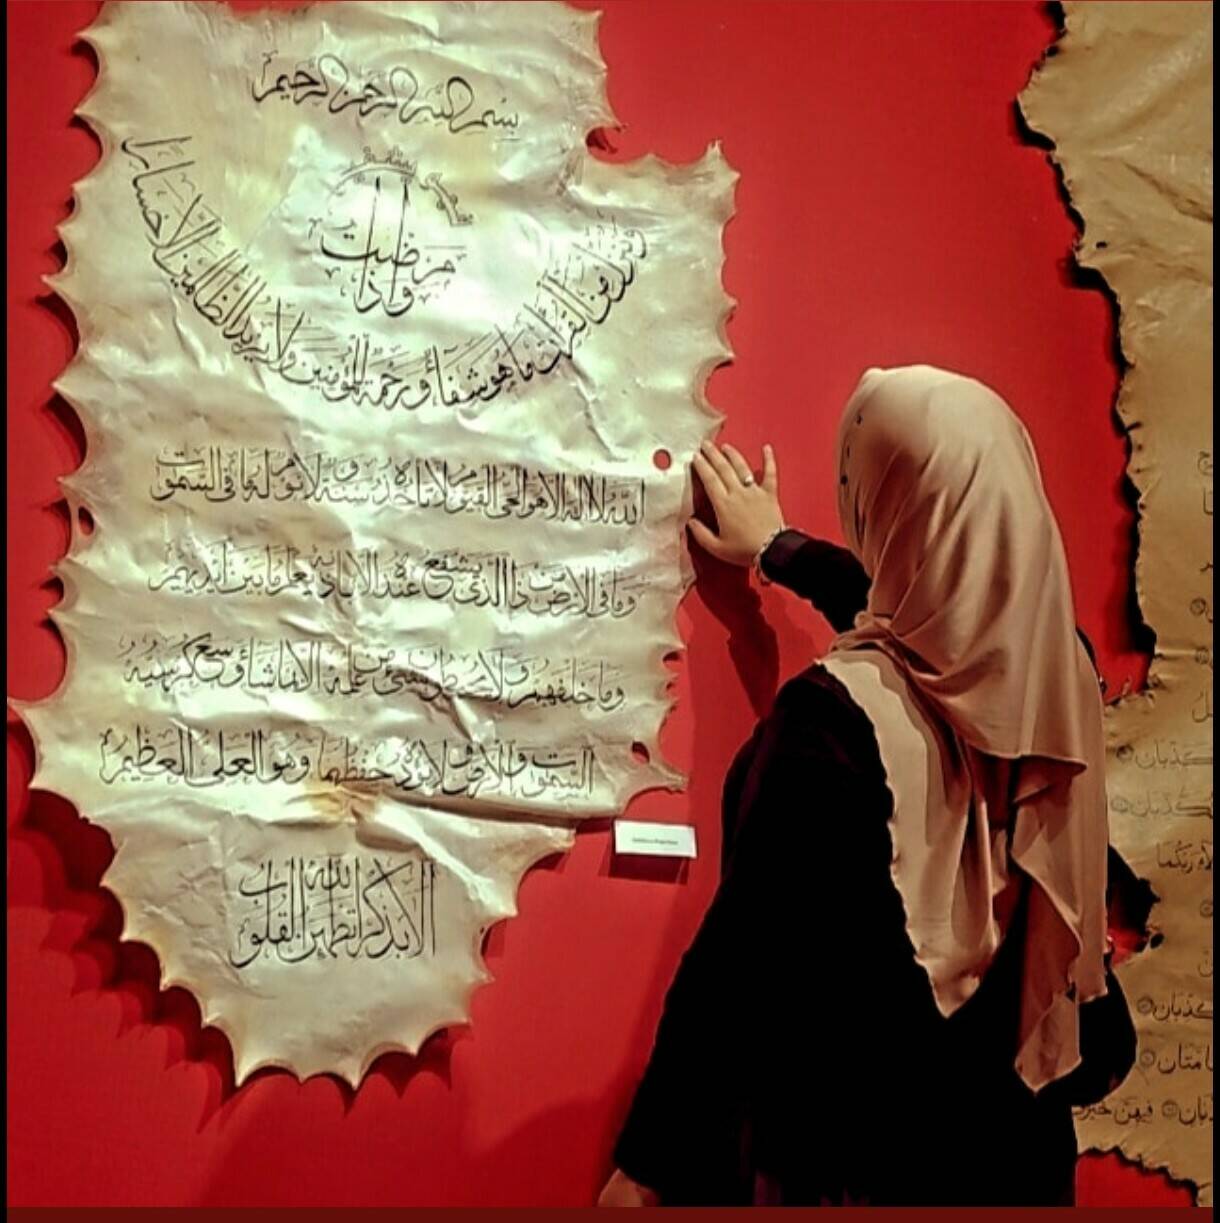 بسم الله الرحمن الرحيم
واذا مرضت فهو يشفين
وننزل من القرآن ما هو شفاء ورحمة للمؤمنين ولا يزيد الظالمين الا خسارا
الله لا اله الا هو الحي القيوم لا تاخذه سنة ولا نوم له ما في السموات
وما في الارض من ذا الذي يشفع عنده الا باذنه يعلم ما بين ايديهم
وما خلفهم ولا يحيطون بشيء من علمه الا بما شاء وسع كرسيه
السموات والارض ولا يؤده حفظهما وهو العلي العظيم
الا بذكر الله تطمئن القلوب
تكذبان
تكذبان
ربكما
تكذبان
مدهامتان
تكذبان فيهن خيرات